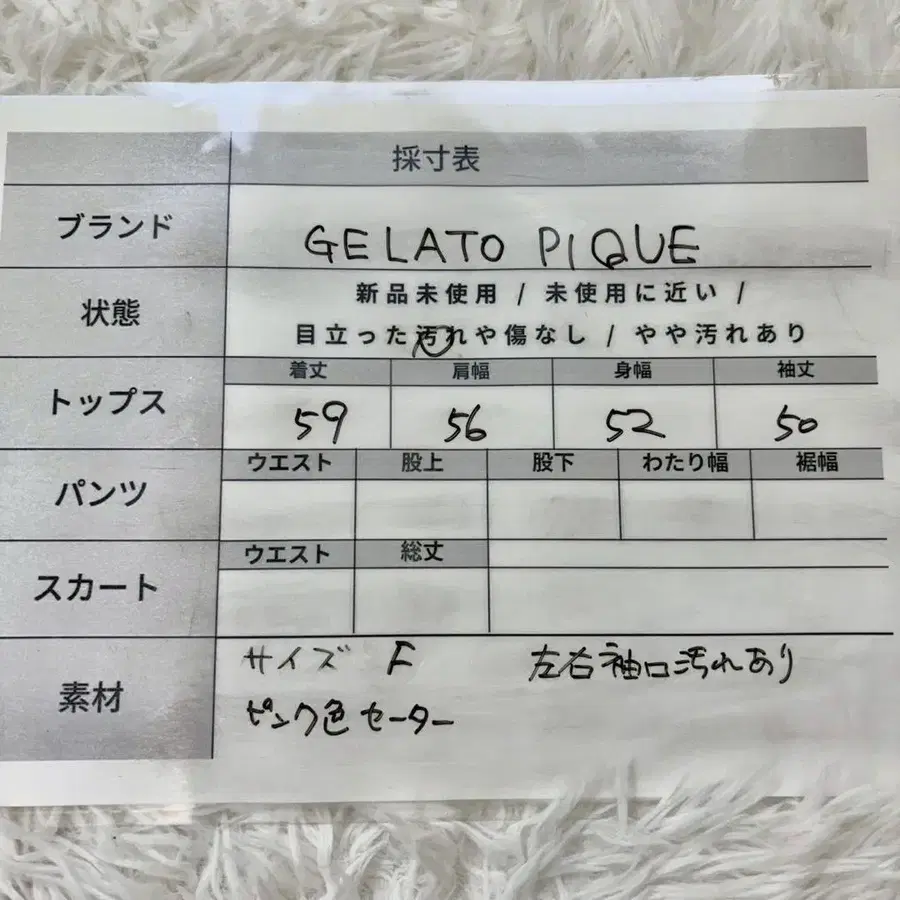 採寸表
ブランド
GELATO PIQUE
状態
新品未使用 / 未使用に近い /
目立った汚れや傷なし / やや汚れあり
トップス
着丈 肩幅 身幅 袖丈
59 56 52 50
パンツ
ウエスト 股上 股下 わたり幅 裾幅
スカート
ウエスト 総丈
素材
サイズ F 左右袖口汚れあり
ピンク色セーター